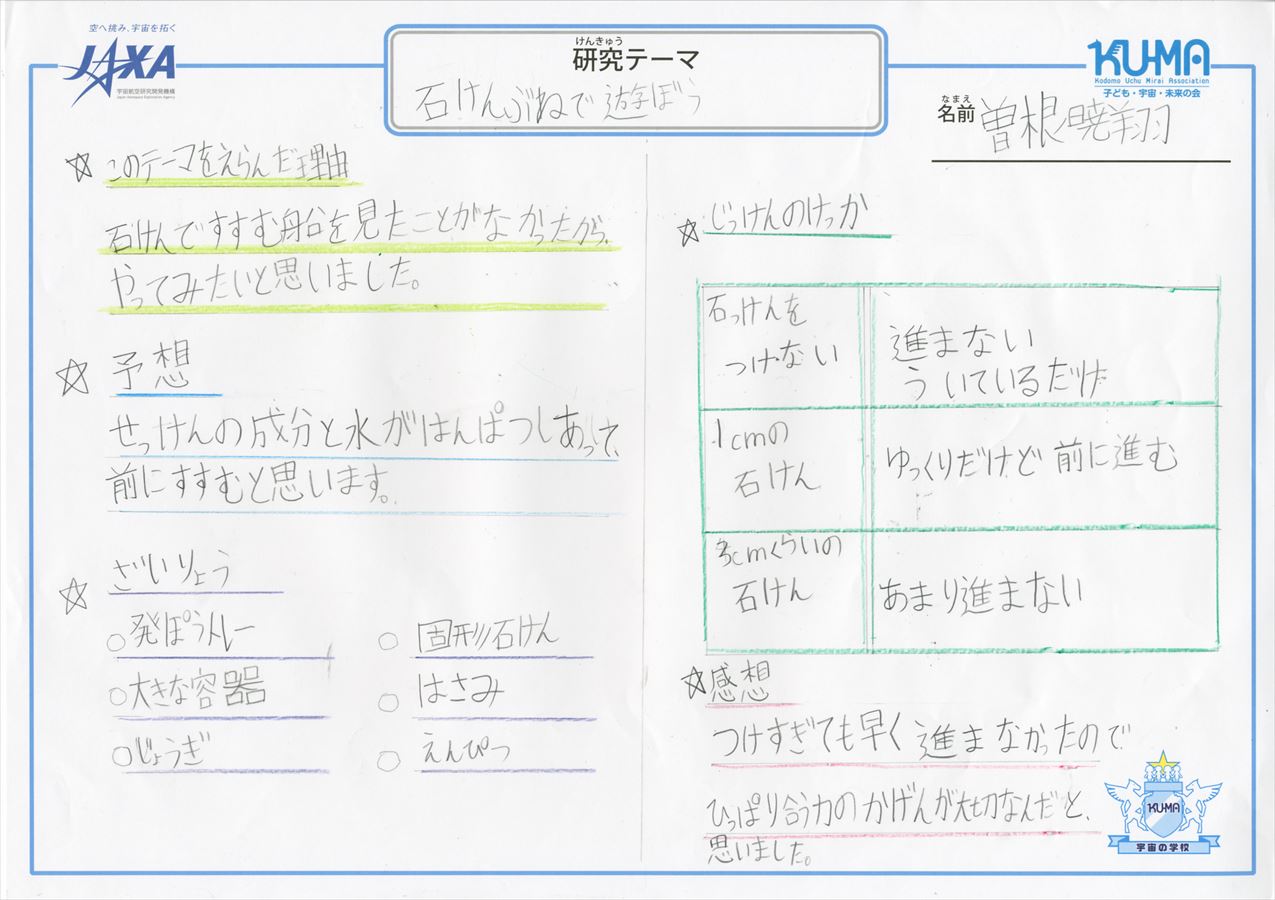 空へ挑み、宇宙を拓く
JAXA
宇宙航空研究開発機構
Japan Aerospace Exploration Agency
けんきゅう
研究テーマ
石けんぶねで遊ぼう
KU-MA
Kodomo Uchu Mirai Association
子ども・宇宙・未来の会
なまえ
名前 曽根暁翔
☆ このテーマをえらんだ理由
石けんですすむ船を見たことがなかったから、
やってみたいと思いました。
☆ 予想
せっけんの成分と水がはんぱつしあって、
前にすすむと思います。
☆ ざいりょう
○発ぽうトレー
○固形石けん
○大きな容器
○はさみ
○じょうぎ
○えんぴつ
☆ じっけんのけっか
石っけんを
つけない
進まない
ういているだけ
1cmの
石けん
ゆっくりだけど前に進む
3cmくらいの
石けん
あまり進まない
☆感想
つけすぎても早く進まなかったので
ひっぱり合う力のかげんが大切なんだと、
思いました。
KU-MA
宇宙の学校